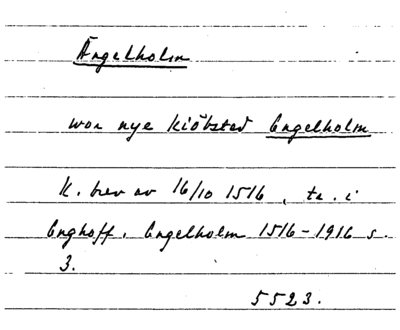 Ängelholm
wor nye kiöbsted Engelholm
K. brev av 16/10 1516, tr. i
Enghoff, Engelholm 1516-1916 s.
3.
5523.